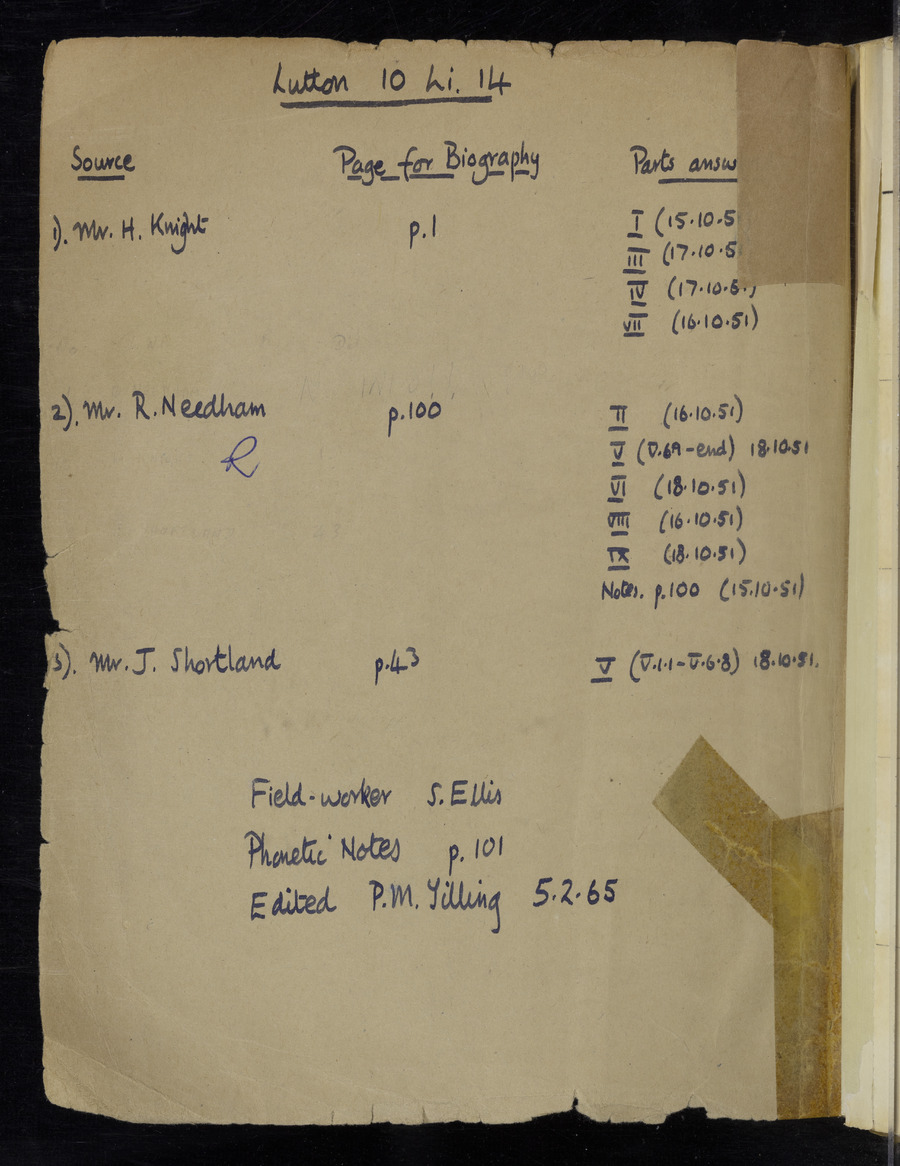 Lutton 10 Li. 14
Source Page for Biography Parts answ
1). Mr. H. Knight p.1 I (15.10.5
III (17.10.5
IV (17.10.5.)
VII (16.10.51)
2). Mr. R. Needham p.100 II (16.10.51)
R V (V.69-end) 18.10.51
VI (18.10.51)
VIII (16.10.51)
IX (18.10.51)
Notes. p.100 (15.10.51)
3). Mr. J. Shortland p.43 V (V.1.1-V.6.8) 18.10.51.
Field-worker S. Ellis
Phonetic Notes p. 101
Edited P.M. Tilling 5.2.65